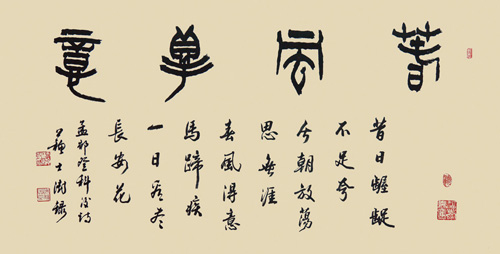 春風得意
昔日齷齪
不足夸
今朝放蕩
思無涯
春風得意
馬蹄疾
一日看盡
長安花
孟郊登科後詩